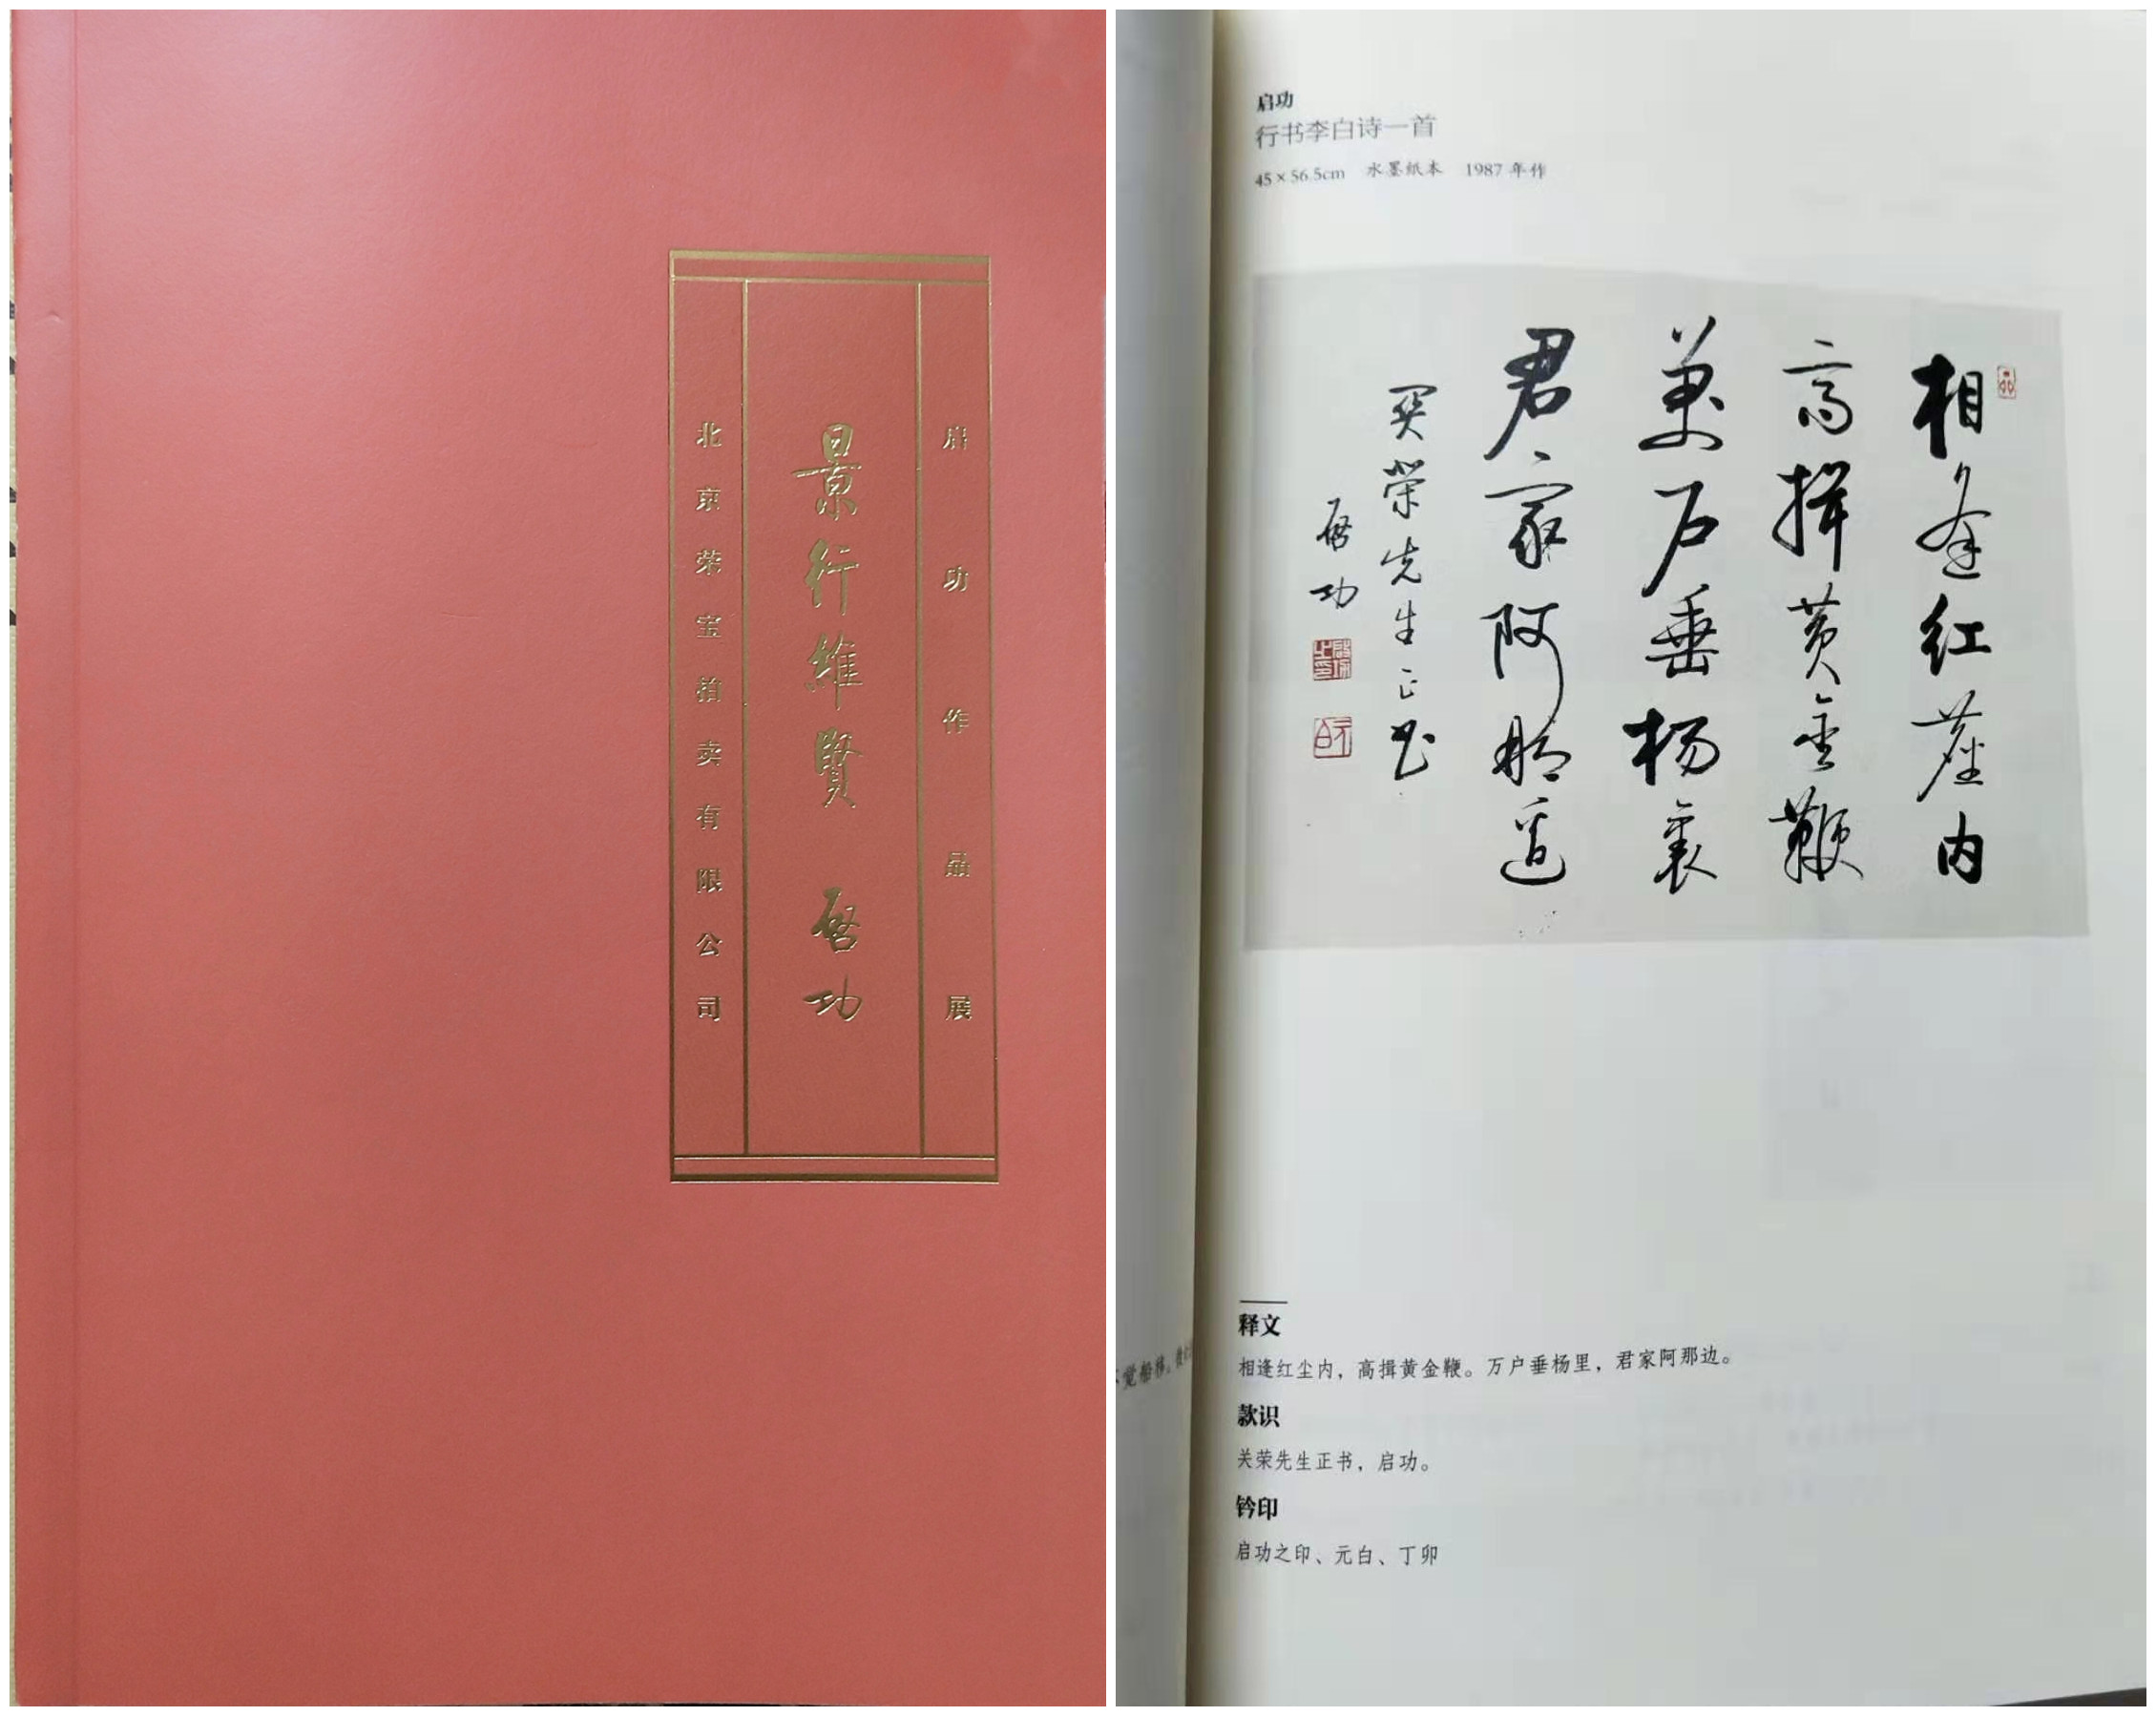 启功作品展
景行維賢 啓功
北京荣宝拍卖有限公司
启功
行书李白诗一首
45×56.5cm 水墨纸本 1987年作
相逢红塵内
高揖黄金鞭
萬户垂杨裏
君家阿那邊
関荣先生正书
啓功
释文
相逢红尘内，高揖黄金鞭。万户垂杨里，君家阿那边。
款识
关荣先生正书，启功。
钤印
启功之印、元白、丁卯
觉船移。